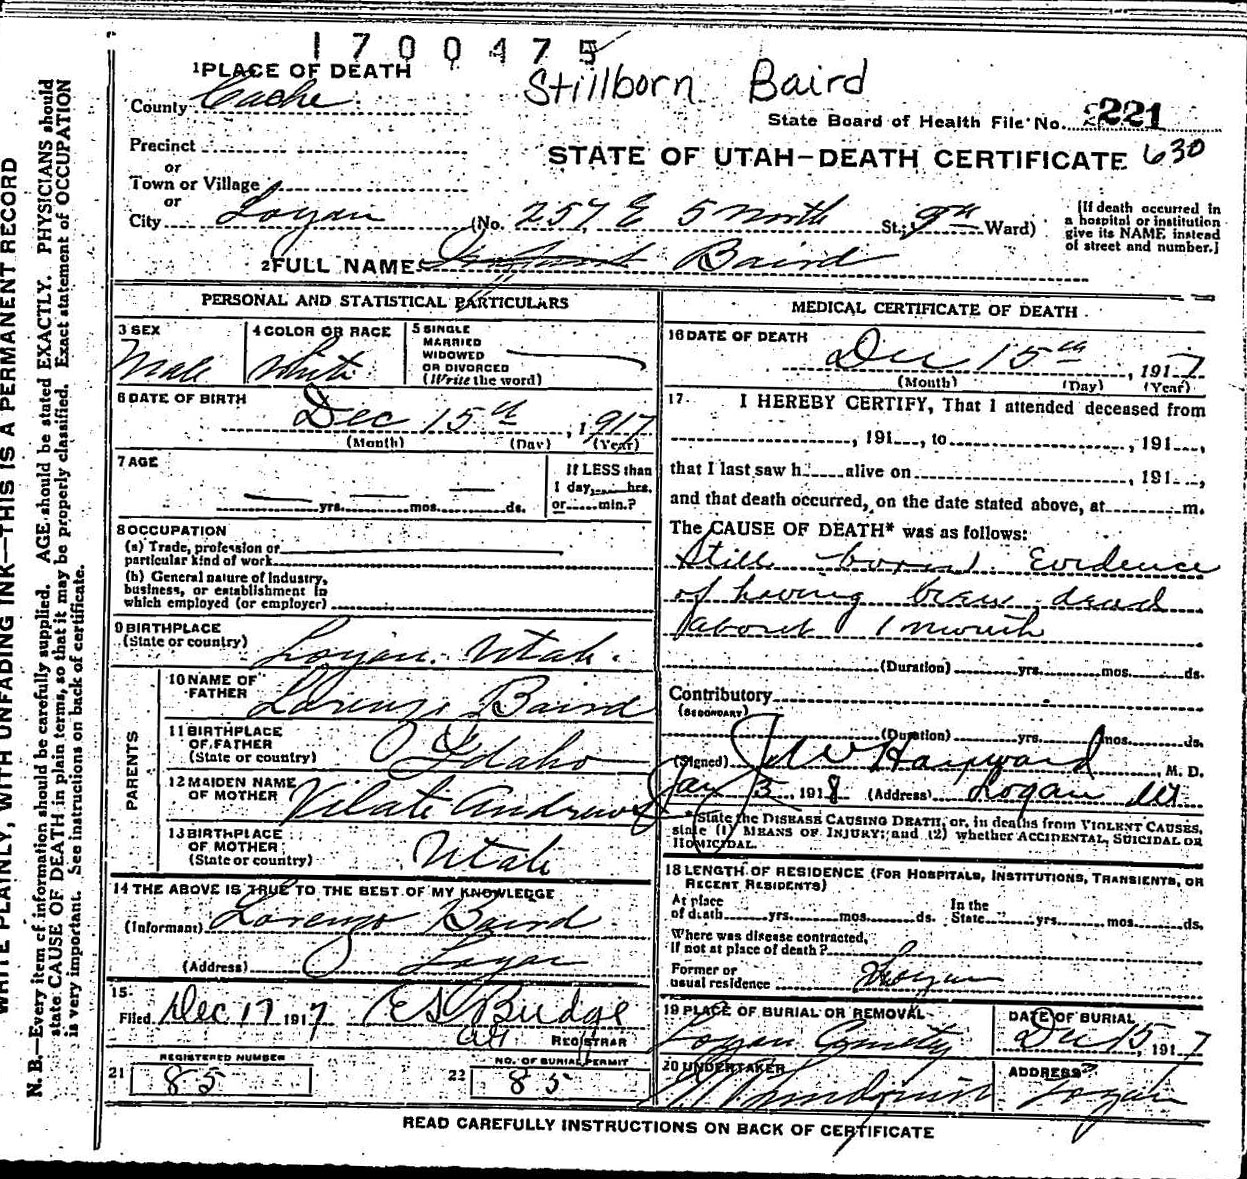 1700475
Stillborn Baird
1 PLACE OF DEATH
County Cache
State Board of Health File No. 221
Precinct
630
STATE OF UTAH—DEATH CERTIFICATE
or
Town or Village
or
City Logan (No. 257 E 5 North St.; 9th Ward)
[If death occurred in
a hospital or institution
give its NAME instead
of street and number.]
2 FULL NAME Baird
PERSONAL AND STATISTICAL PARTICULARS
3 SEX
Male
4 COLOR OR RACE
White
5 SINGLE
MARRIED
WIDOWED
OR DIVORCED
(Write the word)
6 DATE OF BIRTH
Dec 15th, 1917
(Month) (Day) (Year)
7 AGE
yrs. mos. ds.
If LESS than
1 day, hrs.
or min.?
8 OCCUPATION
(a) Trade, profession or
particular kind of work
(b) General nature of Industry,
business, or establishment in
which employed (or employer)
9 BIRTHPLACE
(State or country) Logan. Utah.
PARENTS
10 NAME OF
FATHER Lorenzo Baird
11 BIRTHPLACE
OF FATHER
(State or country) Idaho
12 MAIDEN NAME
OF MOTHER Vilate Andrews
13 BIRTHPLACE
OF MOTHER
(State or country) Utah
14 THE ABOVE IS TRUE TO THE BEST OF MY KNOWLEDGE
(Informant) Lorenzo Baird
(Address) Logan
15
Filed Dec 17 1917 E S Budge
REGISTRAR
REGISTERED NUMBER
21 85
NO. OF BURIAL PERMIT
22 85
MEDICAL CERTIFICATE OF DEATH
16 DATE OF DEATH
Dec 15th, 1917
(Month) (Day) (Year)
17 I HEREBY CERTIFY, That I attended deceased from
, 191 , to , 191 ,
that I last saw h alive on , 191 ,
and that death occurred, on the date stated above, at m.
The CAUSE OF DEATH* was as follows:
Still born. Evidence
of having been dead
about 1 month
(Duration) yrs. mos. ds.
Contributory
(SECONDARY)
(Duration) yrs. mos. ds.
(Signed) J W Hayward, M. D.
Jan 3, 1918 (Address) Logan Ut
*State the DISEASE CAUSING DEATH, or, in deaths from VIOLENT CAUSES,
state (1) MEANS OF INJURY; and (2) whether ACCIDENTAL, SUICIDAL OR
HOMICIDAL.
18 LENGTH OF RESIDENCE (FOR HOSPITALS, INSTITUTIONS, TRANSIENTS, OR
RECENT RESIDENTS)
At place
of death yrs. mos. ds.
In the
State yrs. mos. ds.
Where was disease contracted,
If not at place of death?
Former or
usual residence Logan
19 PLACE OF BURIAL OR REMOVAL
Logan Cemetery
DATE OF BURIAL
Dec 15, 1917
20 UNDERTAKER
Lindquist
ADDRESS
Logan
READ CAREFULLY INSTRUCTIONS ON BACK OF CERTIFICATE
WRITE PLAINLY, WITH UNFADING INK—THIS IS A PERMANENT RECORD
N. B.—Every item of information should be carefully supplied. AGE should be stated EXACTLY. PHYSICIANS should
state CAUSE OF DEATH in plain terms, so that it may be properly classified. Exact statement of OCCUPATION
is very important. See instructions on back of certificate.